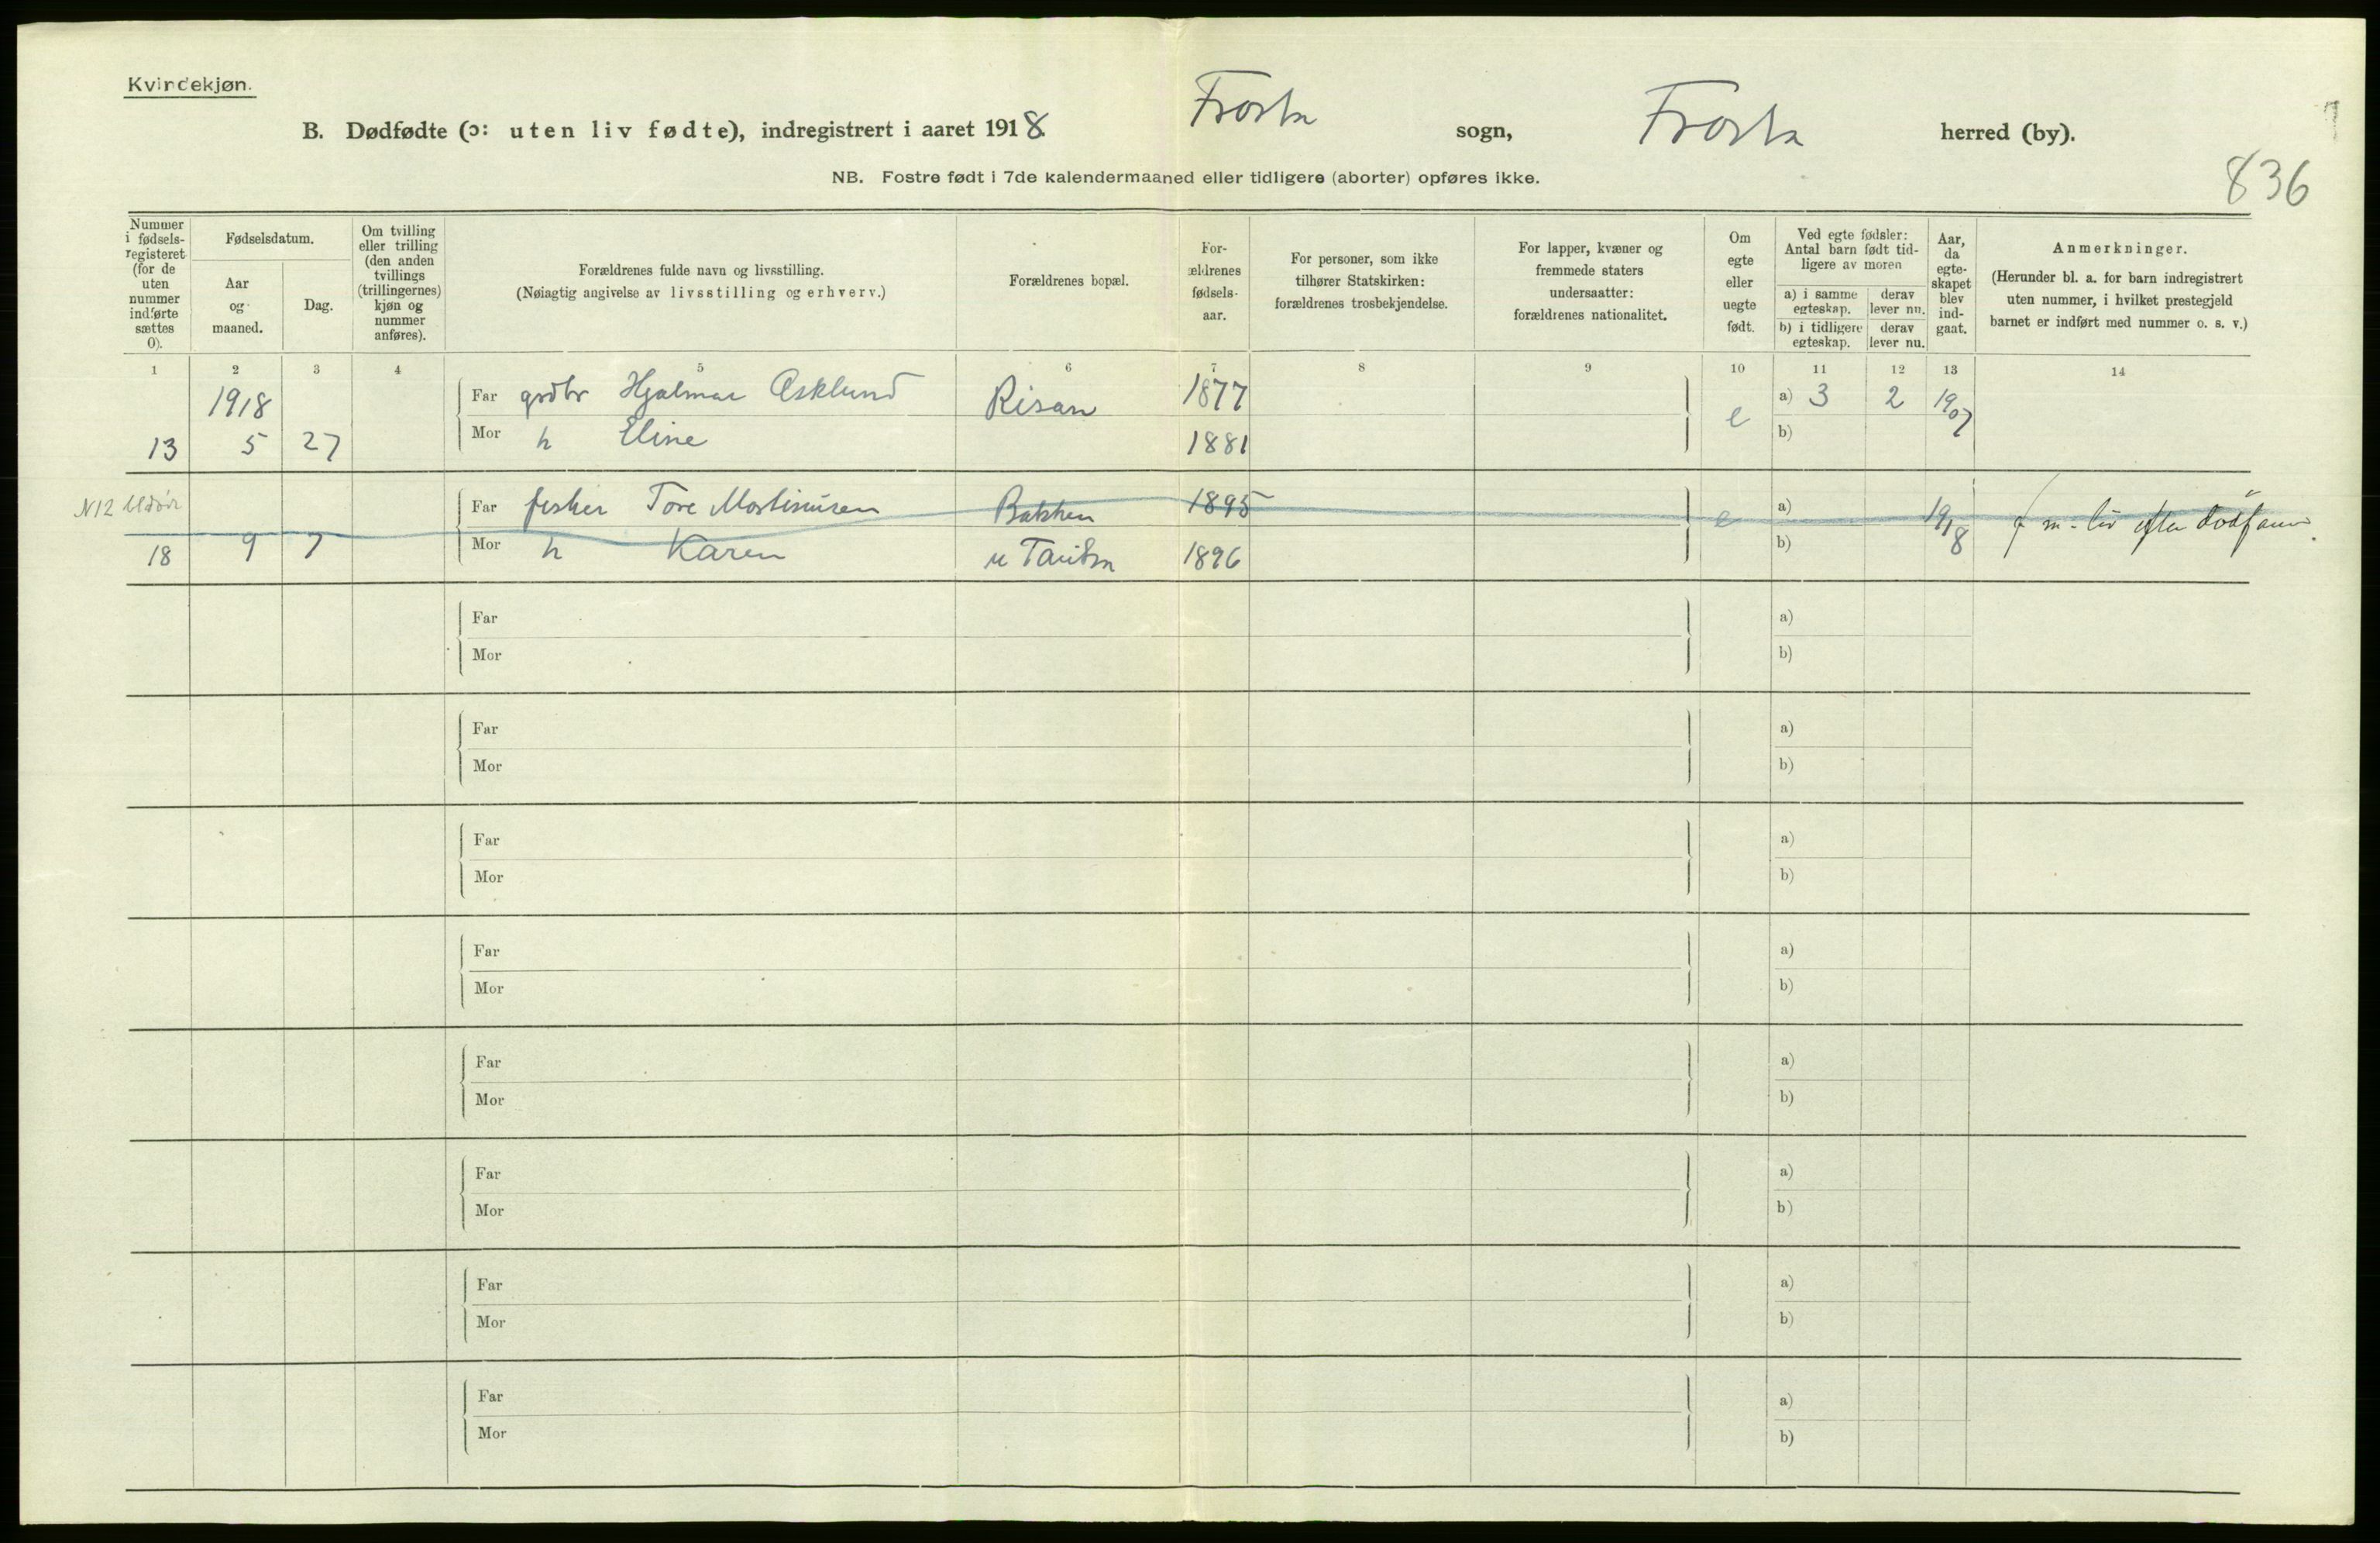 Kvindekjøn.
B. Dødfødte (ɔ: uten liv fødte), indregistrert i aaret 1918. Frosta sogn, Frosta herred (by).
NB. Fostre født i 7de kalendermaaned eller tidligere (aborter) opføres ikke.
836
Nummer i fødsels-registeret (for de uten nummer indførte sættes 0).
Fødselsdatum.
Aar og maaned.
Dag.
Om tvilling eller trilling (den anden tvillings (trillingernes) kjøn og nummer anføres).
Forældrenes fulde navn og livsstilling.
(Nøiagtig angivelse av livsstilling og erhverv.)
Forældrenes bopæl.
For-ældrenes fødsels-aar.
For personer, som ikke tilhører Statskirken: forældrenes trosbekjendelse.
For lapper, kvæner og fremmede staters undersaatter: forældrenes nationalitet.
Om egte eller uegte født.
Ved egte fødsler: Antal barn født tid-ligere av moren
a) i samme egteskap.
derav lever nu.
b) i tidligere egteskap.
derav lever nu.
Aar, da egte-skapet blev ind-gaat.
Anmerkninger.
(Herunder bl. a. for barn indregistrert uten nummer, i hvilket prestegjeld barnet er indført med nummer o. s. v.)
1 2 3 4 5 6 7 8 9 10 11 12 13 14
1918 Far grdbr Hjalmar Asklund Risan 1877 e a) 3 2 1907
13 5 27 Mor h Eline 1881 b)
N12
Far fisker Tore Martinusen Bakken 1895 e a) 1918 f m. liv efter
18 9 7 Mor h Karen u Tautra 1896 b)
Far a)
Mor b)
Far a)
Mor b)
Far a)
Mor b)
Far a)
Mor b)
Far a)
Mor b)
Far a)
Mor b)
Far a)
Mor b)
Far a)
Mor b)